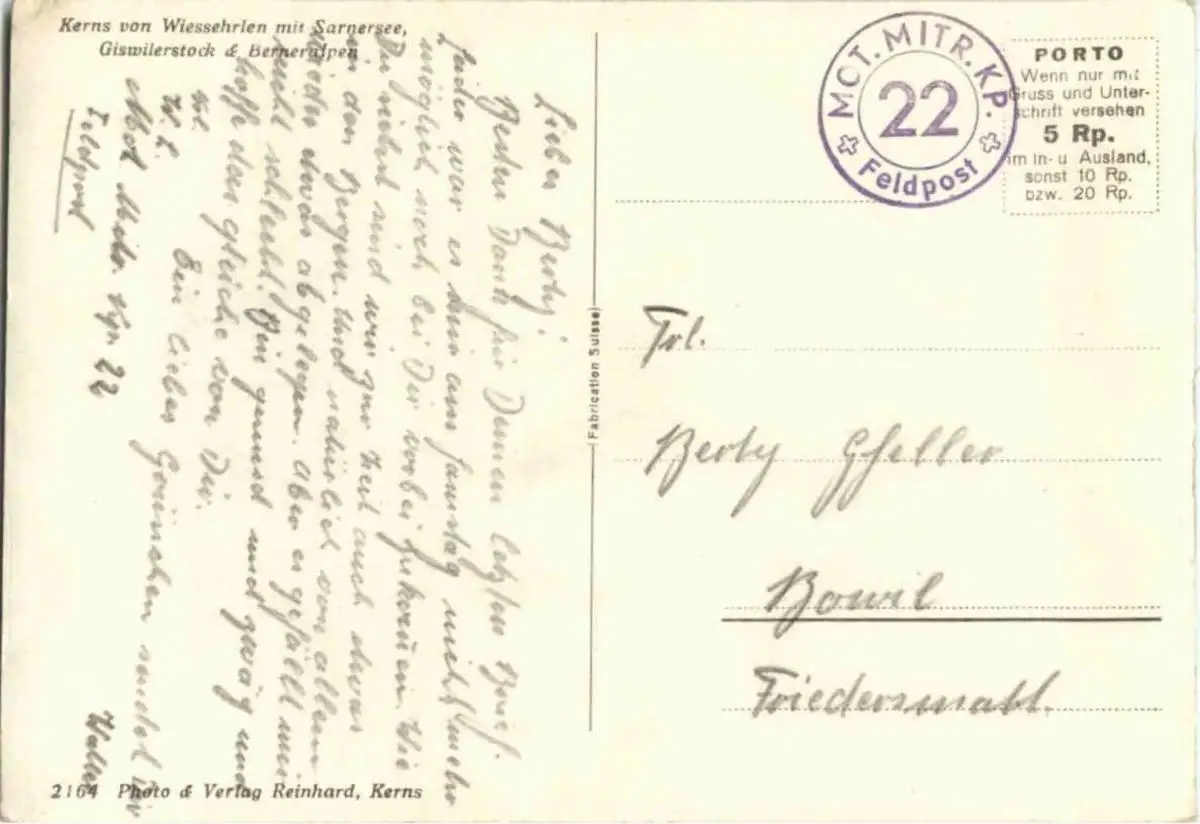 Kerns von Wiessehrlen mit Sarnersee,
Giswilerstock & Berneralpen
Lieber Berty!
Besten Dank für Deinen letzten Brief.
Leider war es mir am Samstag nicht mehr
möglich noch bei Dir vorbei zukommen. Wie
Du siehst sind wir zur Zeit auch etwas
in den Bergen. Und natürlich von allem
wieder etwas abgelegen. Aber es gefällt mir
nicht schlecht. Bin gesund und zwäg und
hoffe das gleiche von Dir.
Ein liebes Grüsschen sendet Dir
Walter
Mot. Mitr. Kp. 22
Feldpost
2164 Photo & Verlag Reinhard, Kerns
(Fabrication Suisse)
MOT. MITR. KP.
22
Feldpost
PORTO
Wenn nur mit
Gruss und Unter-
schrift versehen
5 Rp.
im In- u Ausland,
sonst 10 Rp.
bzw. 20 Rp.
Frl.
Berty Gfeller
Bowil
Friedersmatt.